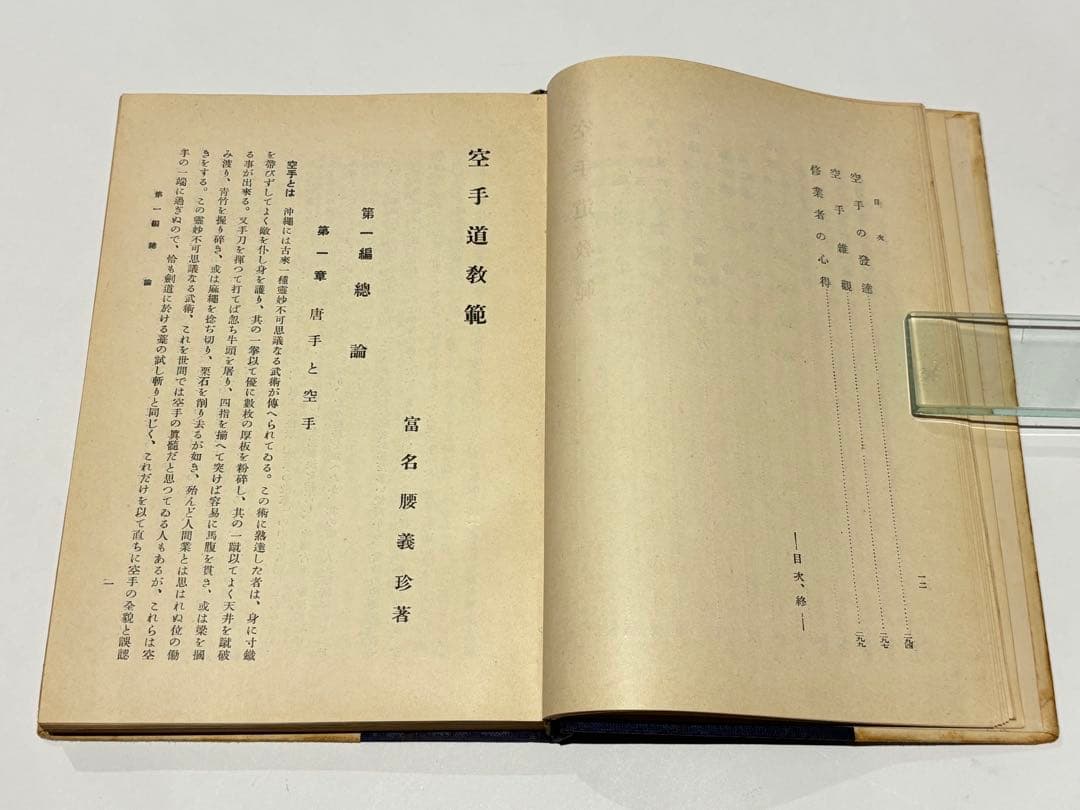 目次
空手の發達……二九四
空手雜觀……二九七
修業者の心得……二九九
―目次、終―
一二
空手道教範
富名腰義珍著
第一編 總論
第一章 唐手と空手
空手とは 沖繩には古來一種靈妙不可思議なる武術が傳へられてゐる。この術に熟達した者は、身に寸鐵
を帶びずしてよく敵を仆し身を護り、其の一拳以て優に數枚の厚板を粉碎し、其の一蹴以てよく天井を蹴破
る事が出來る。又手刀を揮つて打てば忽ち牛頭を屠り、四指を揃へて突けば容易に馬腹を貫き、或は梁を摑
み渡り、青竹を握り碎き、或は麻繩を捻ぢ切り、栗石を削り去るが如き、殆んど人間業とは思はれぬ位の働
きをする。この靈妙不可思議なる武術、これを世間では空手の眞髓だと思つてゐる人もあるが、これらは空
手の一端に過ぎぬので、恰も劍道に於ける藁の試し斬りと同じく、これだけを以て直ちに空手の全貌と誤認
第一編 總論
一